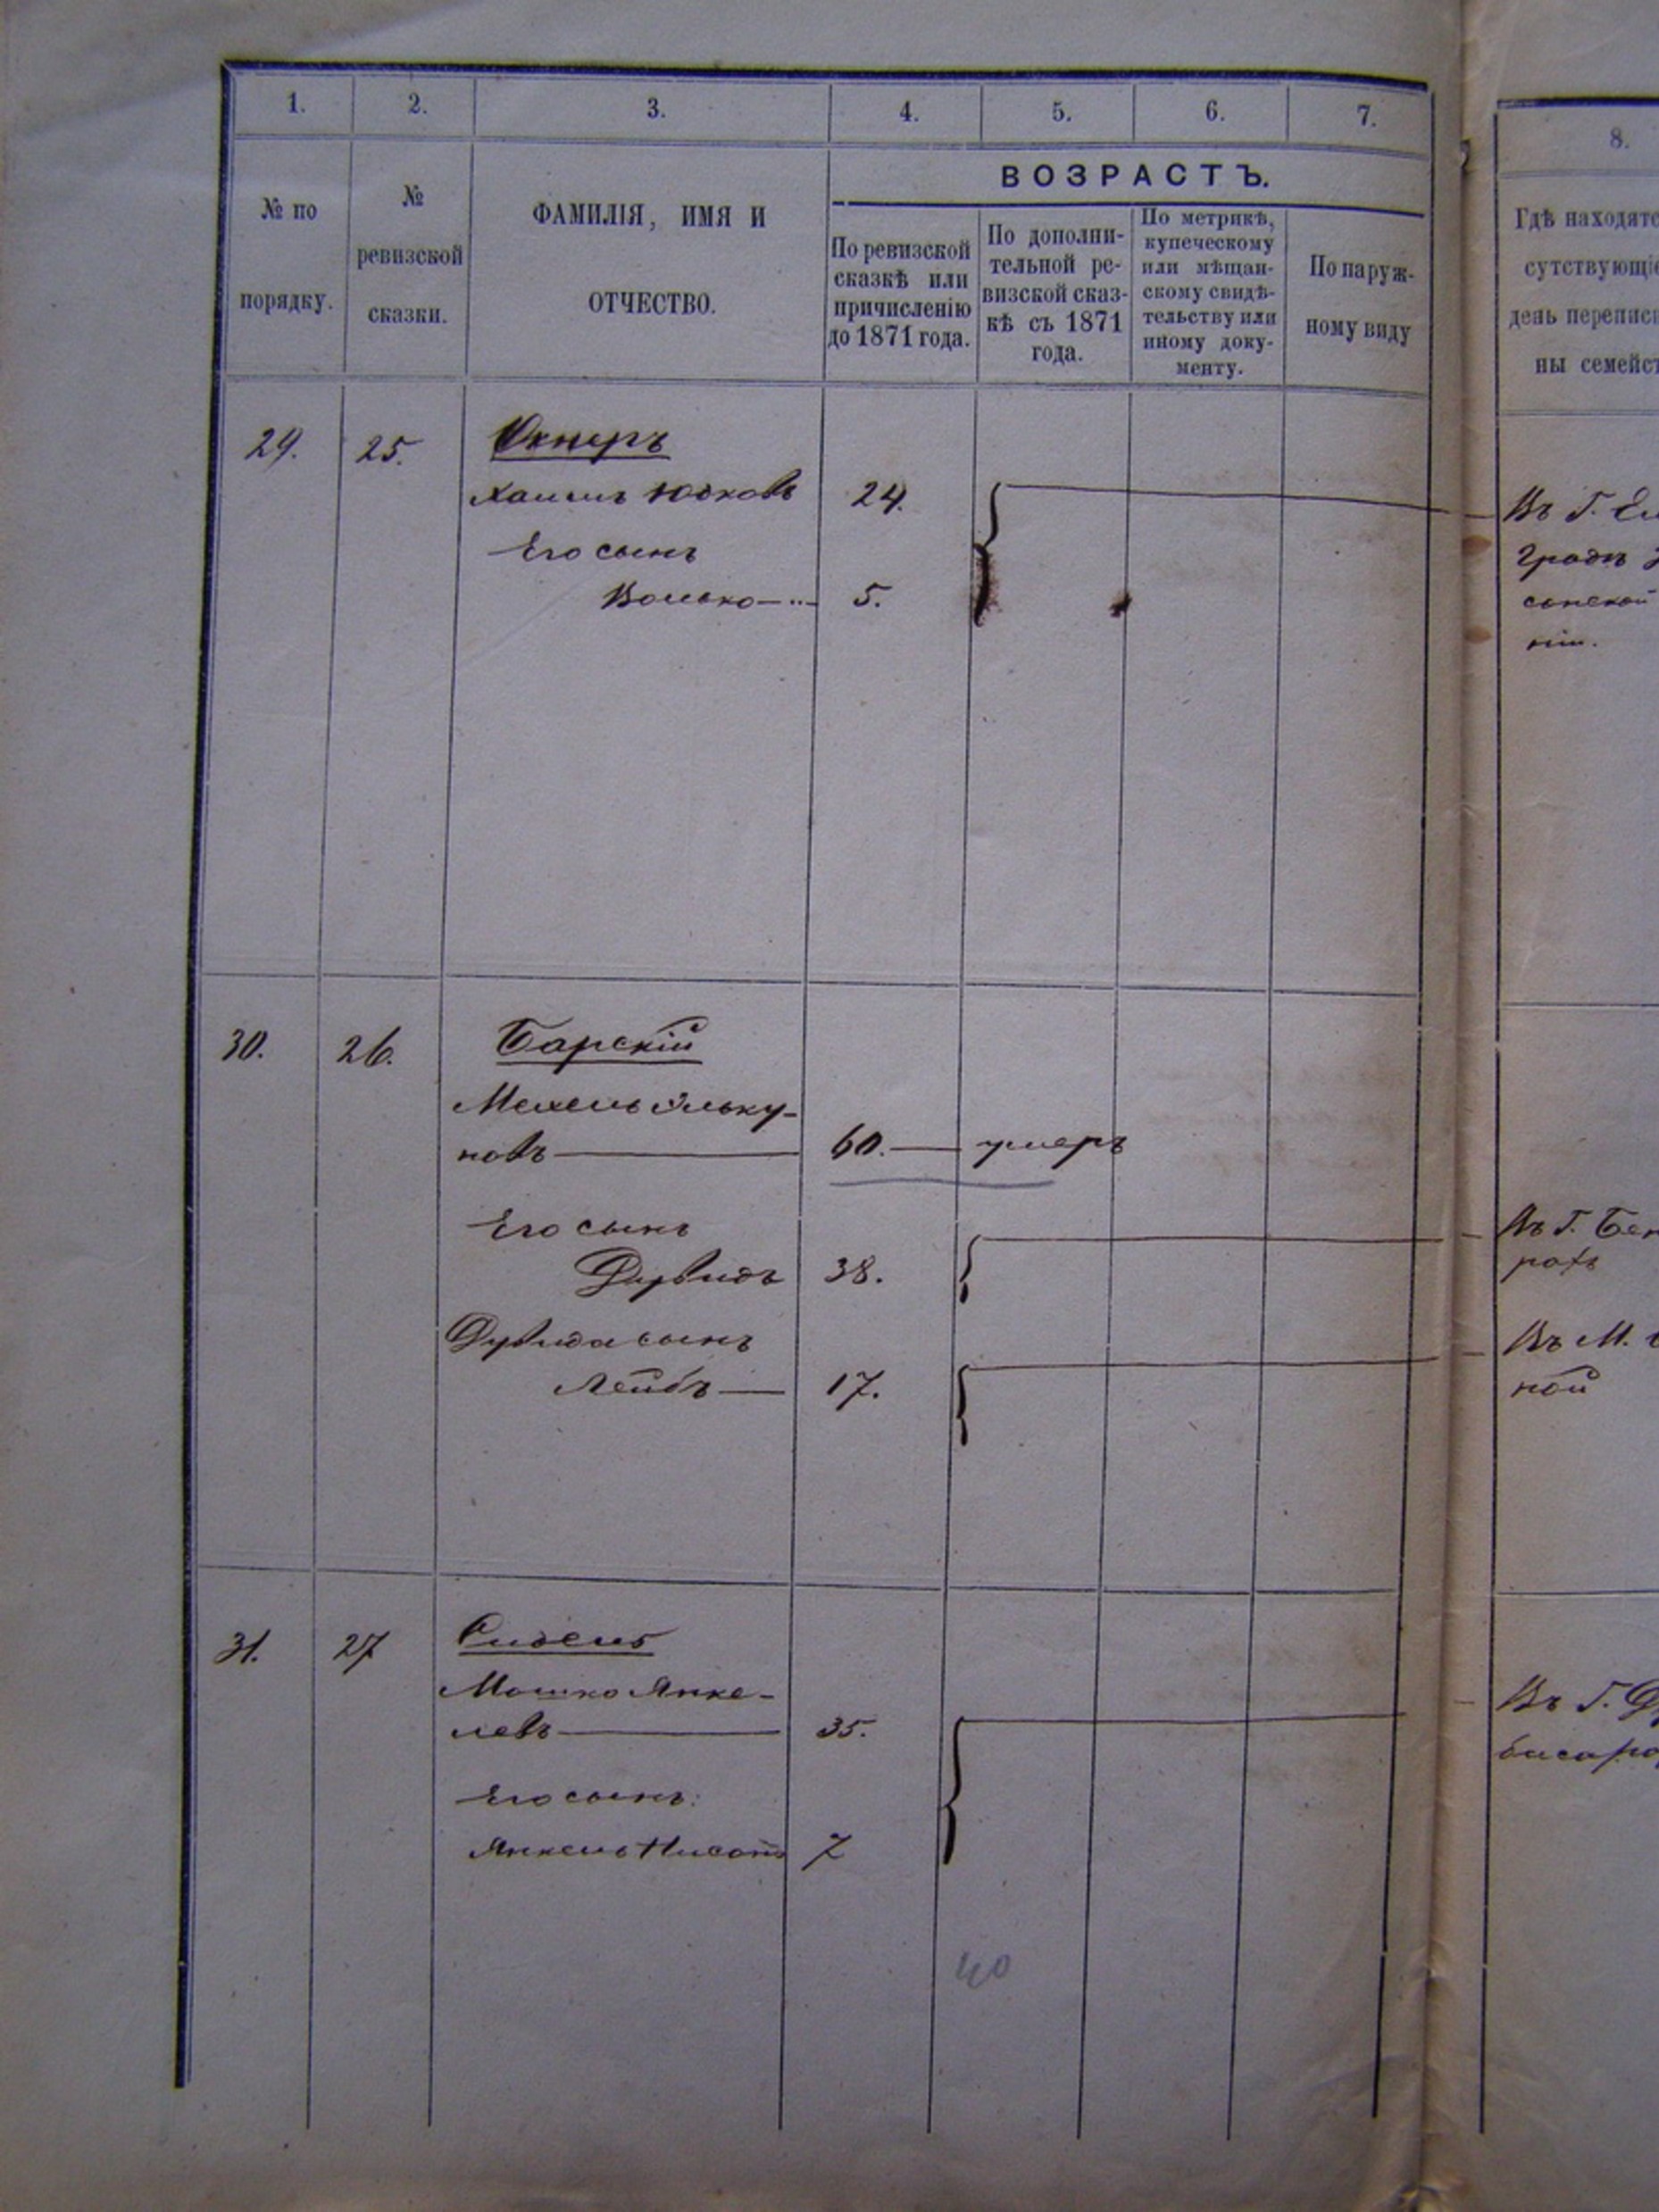 1. 2. 3. 4. 5. 6. 7. 8.
ВОЗРАСТЪ.
№ по
порядку.
№
ревизской
сказки.
ФАМИЛІЯ, ИМЯ И
ОТЧЕСТВО.
По ревизской
сказкѣ или
причисленію
до 1871 года.
По дополни-
тельной ре-
визской сказ-
кѣ съ 1871
года.
По метрикѣ,
купеческому
или мѣщан-
скому свидѣ-
тельству или
иному доку-
менту.
По наруж-
ному виду
Гдѣ находятс
сутствующіе
день переписи
ны семейст
29. 25.
Хаимъ Юдковъ 24. Въ Г. Ели
Его сынъ градѣ
Волько 5. сонской
ніи.
30. 26. Барскій
Мехель Эльку-
новъ 60. умеръ
Его сынъ Въ Г. Бен
Дувидъ 38. рахъ
Дувида сынъ Въ М.
Лейбъ 17. ной
31. 27
Мошко Янке-
левъ 35. Въ Г.
Его сынъ:
Янкель 7
40